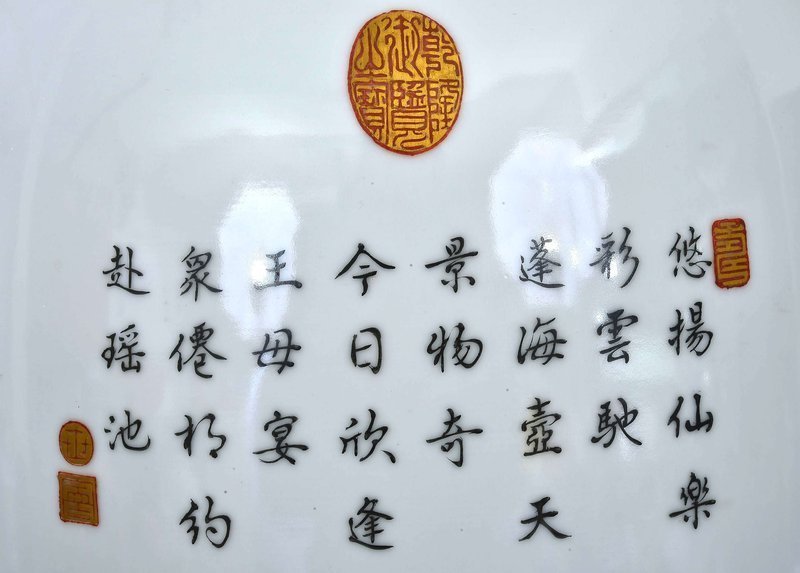 乾隆御覽之寶
悠揚仙樂
彩雲馳
蓬海壺天
景物奇
今日欣逢
王母宴
眾僊相約
赴瑶池